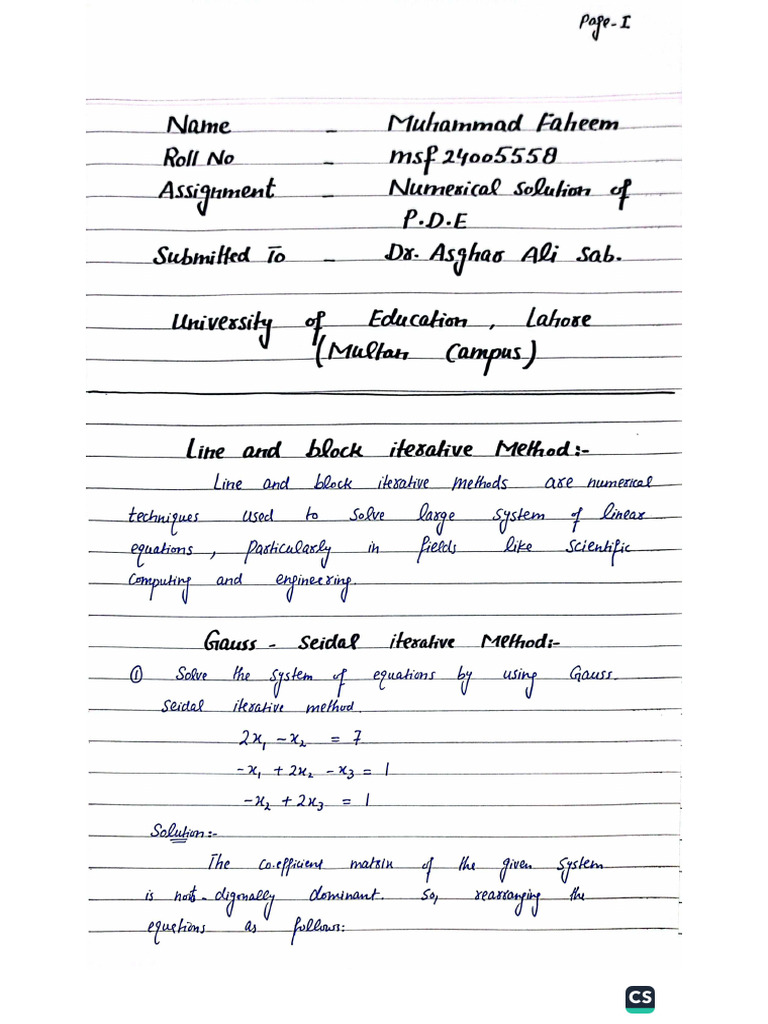 Page-I
Name - Muhammad Faheem
Roll No - msf24005558
Assignment - Numerical solution of
P.D.E
Submitted To - Dr. Asghar Ali Sab.
University of Education, Lahore
(Multan Campus)
Line and block iterative Method:-
Line and block iterative methods are numerical
techniques used to solve large system of linear
equations, particularly in fields like scientific
Computing and engineering.
Gauss - Seidal iterative Method:-
① Solve the system of equations by using Gauss-
Seidal iterative method.
2x₁ - x₂ = 7
-x₁ + 2x₂ - x₃ = 1
-x₂ + 2x₃ = 1
Solution:-
The co.efficient matrix of the given system
is digonally dominant. So, rearranging the
equations as follows:
CS